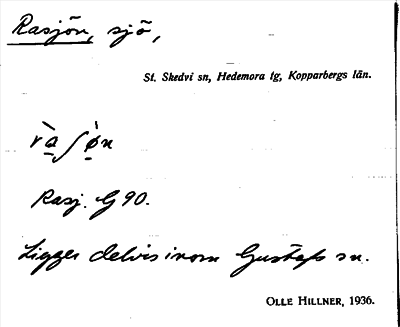 Rasjön, sjö,
St. Skedvi sn, Hedemora tg, Kopparbergs län.
rа̀ʃø̀n
Rasj. G 90.
Ligger delvis inom Gustafs sn.
OLLE HILLNER, 1936.